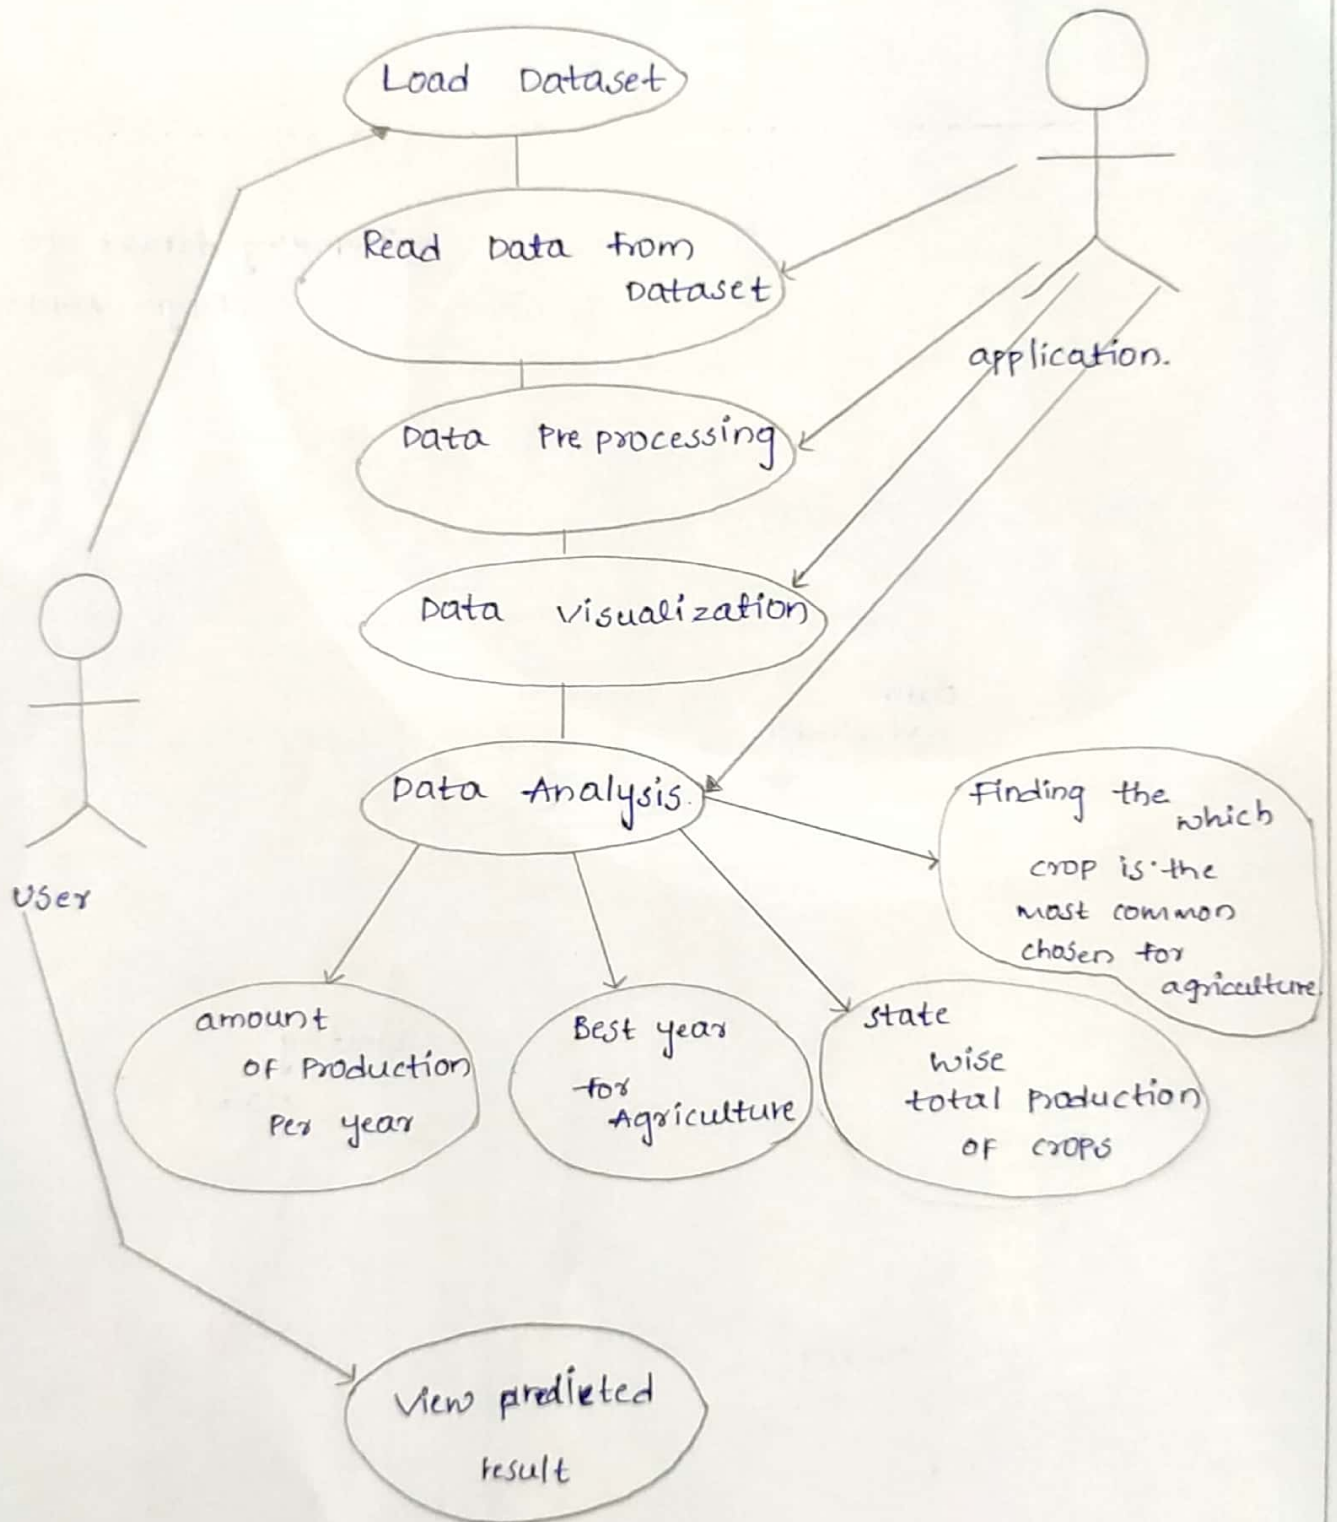 Load Dataset
Read Data from
Dataset
application.
Data Preprocessing
Data Visualization
Data Analysis.
Finding the
which
crop is the
most common
chosen for
agriculture
User
amount
of Production
Per year
Best year
for
Agriculture
state
wise
total production
of crops
View predicted
result